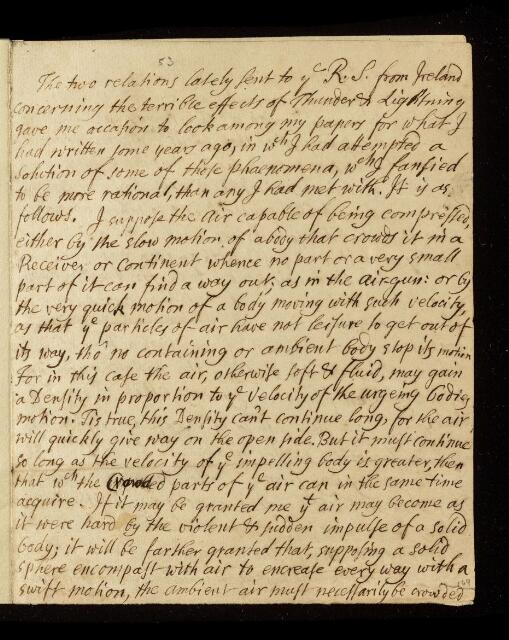 53
The two relations lately sent to yᵉ R. S. from Ireland
concerning the terrible effects of Thunder & Lightning
gave me occasion to look among my papers for what I
had written some years ago, in wᶜʰ I had attempted a
solution of some of these Phaenomena, wᶜʰ I fansied
to be more rational, than any I had met with. It is as
follows. I suppose the air capable of being compressed,
either by the slow motion of a body that crowds it in a
Receiver or Continent whence no part or a very small
part of it can find a way out, as in the air-gun: or by
the very quick motion of a body moving with such velocity,
as that yᵉ particles of air have not leisure to get out of
its way, tho' no containing or ambient body stop its motion
For in this case the air, otherwise soft & fluid, may gain
a Density in proportion to yᵉ velocity of the urgeing bodies
motion. Tis true, this Density can't continue long, for the air
will quickly give way on the open side. But it must continue
so long as the velocity of yᵉ impelling body is greater, then
that wᶜʰ the Crowded parts of yᵉ air can in the same time
acquire. If it may be granted me yᵗ air may become as
it were hard by the violent & sudden impulse of a solid
body; it will be farther granted that, supposing a solid
sphere encompast with air to encrease every way with a
swift motion, the ambient air must necessarily be crowded